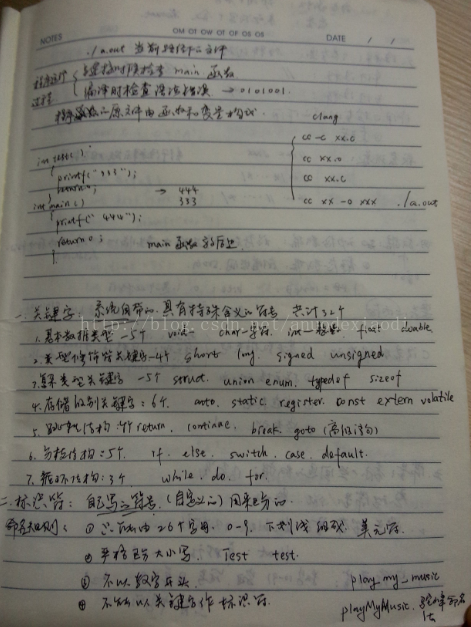 NOTES
OM OT OW OT OF OS OS
DATE / /
./a.out 当前路径下的文件
链接时检查 main 函数
编译时检查语法错误 → 0101001.
clang
cc -c xx.c
cc xx.o
cc xx.c
cc xx -o xxx ./a.out
int test()
{
printf("333");
return 0;
}
int main()
{
printf("444");
return 0;
}
→ 444
333
main 函数
一. 关键字: 系统自带的. 具有特殊含义的符号 共计32个
http://blog.csdn.net/
1. 基本数据类型 -5个 void- char-字符. int-整型. float double.
2. 类型修饰符关键字-4个 short long. signed unsigned.
3. 复杂类型关键字 -5个 struct. union enum. typedef sizeof
4. 存储级别关键字: 6个. auto. static. register. const extern volatile
5. 跳转结构: 4个 return. continue. break. goto
6. 分支结构: 5个. if. else. switch. case. default.
7. 循环结构: 3个. while. do. for.
二. 标识符: 自己写的符号. (自定义的)
命名规则: ① 只能由26个字母. 0-9. 下划线组成.
② 严格区分大小写. Test test.
③ 不以数字开头
④ 不能以关键字作标识符.
play_my_music
playMyMusic. 驼峰命名法